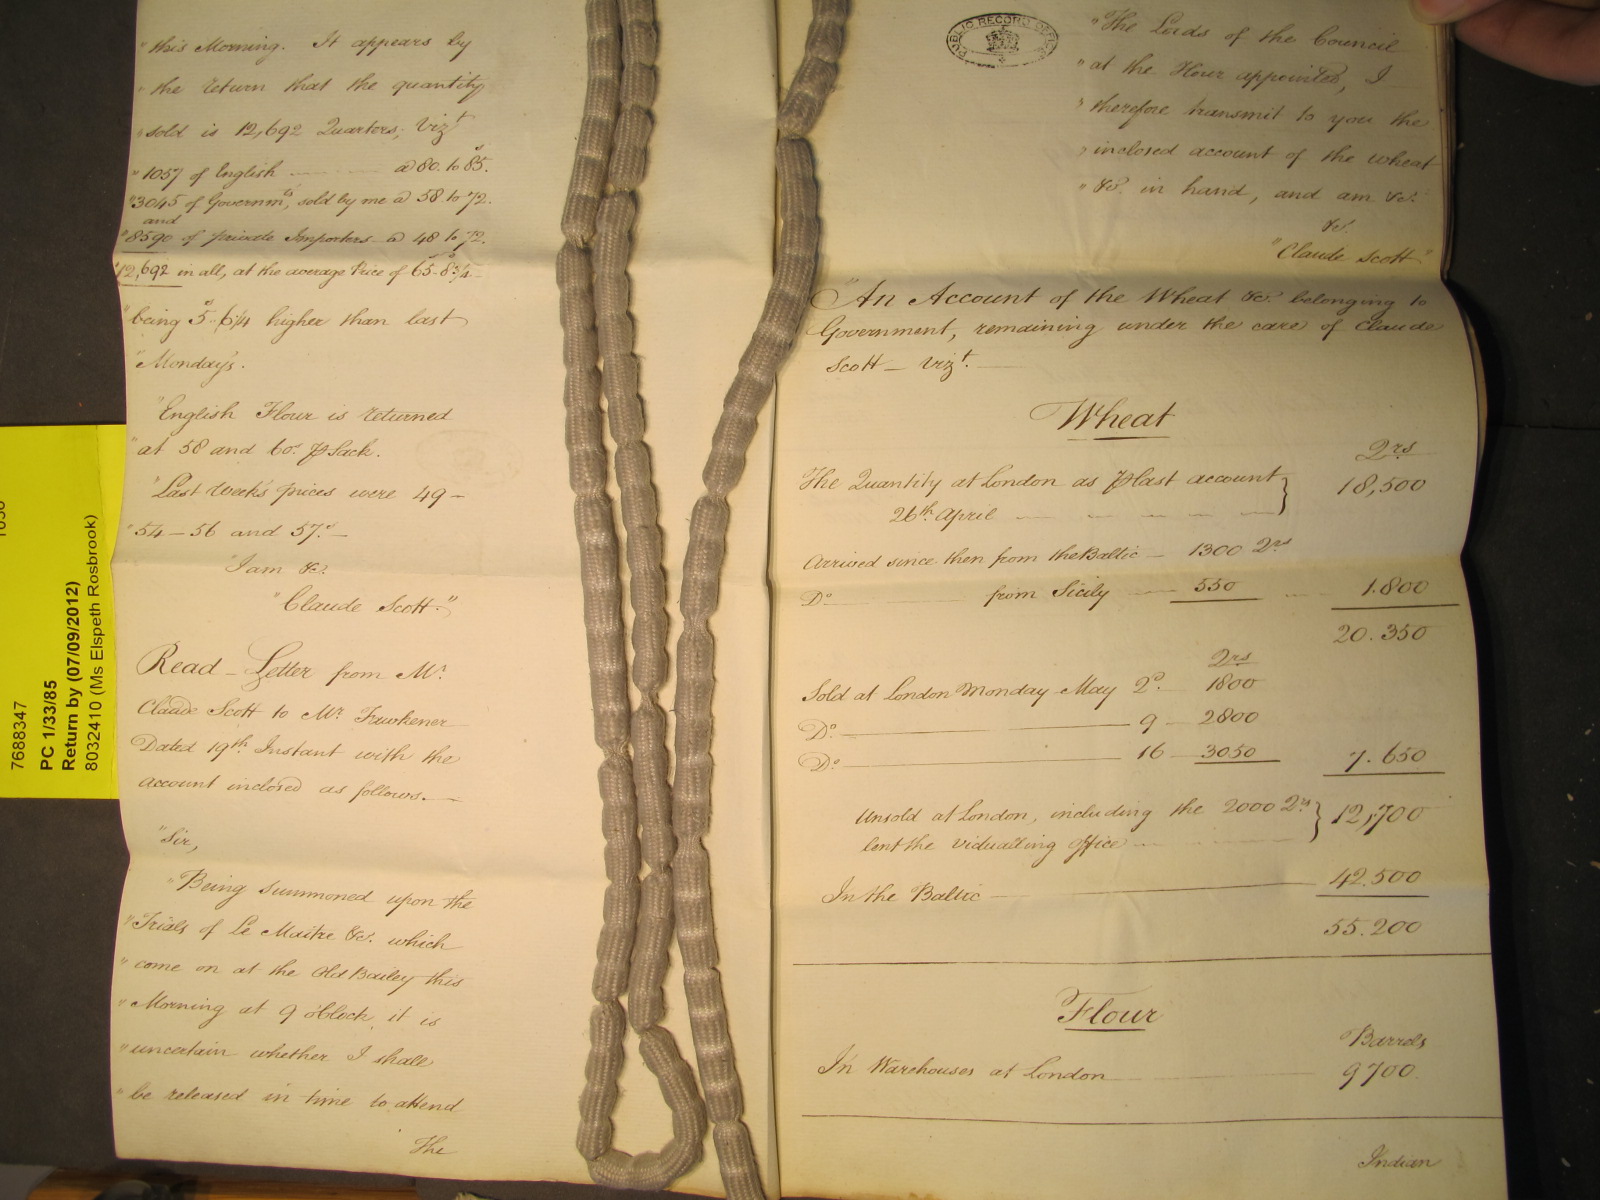 "this Morning. It appears by
"the return that the quantity
"sold is 12,692 Quarters; Vizt
"1057 of English a 80. to 85.s
"3045 of Governmt, sold by me a 58 to 72.
and
"8590 of private Importers a 48 to 72.
"12,692 in all, at the average Price of 65s-8¾
"being 5s-6¼ higher than last
"Monday's.
"English Flour is returned
"at 58 and 60s. ⅌ Sack.
"Last Week's prices were 49-
"54-56 and 57s.-
"I am &c.
"Claude Scott."
Read - Letter from Mr.
Claude Scott to Mr. Fawkener
Dated 19th Instant with the
account inclosed as follows.
"Sir,
"Being summoned upon the
"Trials of Le Maitre &c. which
"come on at the Old Bailey this
"Morning at 9 o'Clock, it is
"uncertain whether I shall
"be released in time to attend
The
"The Lords of the Council
"at the Hour appointed, I
"therefore transmit to you the
"inclosed account of the wheat
"&c. in hand, and am &c.
&c.
"Claude Scott"
"An Account of the Wheat &c. belonging to
Government, remaining under the care of Claude
Scott - Vizt.
Wheat
Qrs
The Quantity at London as ⅌ last account 26th April 18,500
Arrived since then from the Baltic - 1300 Qrs
Do from Sicily 550 1.800
20.350
Qrs
Sold at London Monday May 2d. 1800
Do. 9 2800
Do. 16 3050 7.650
Unsold at London, including the 2000 Qrs
lent the victualling Office 12,700
In the Baltic 42.500
55.200
Flour
Barrels
In Warehouses at London 9700
Indian
PUBLIC RECORD OFFICE
7688347
PC 1/33/85
Return by (07/09/2012)
8032410 (Ms Elspeth Rosbrook)